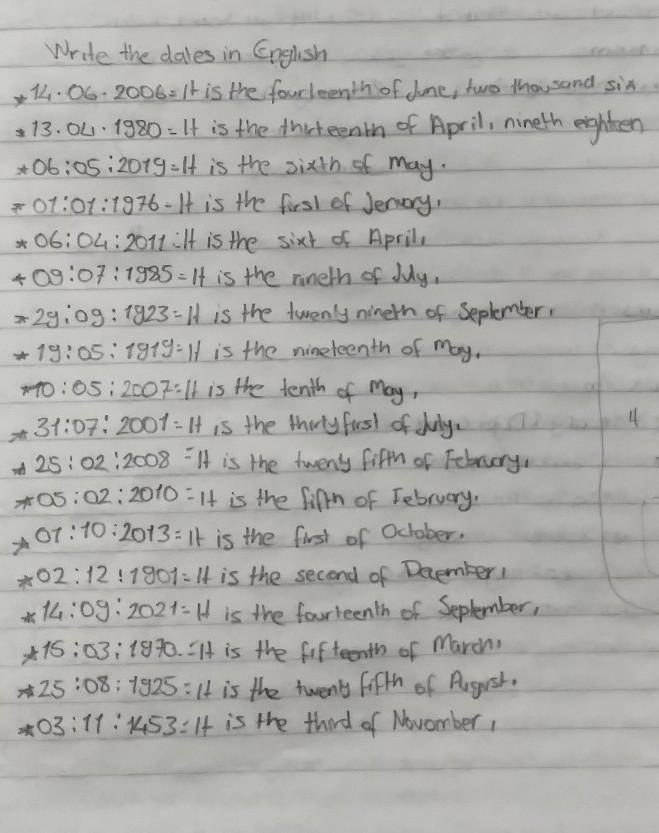 Write the dates in English
*14.06.2006=It is the fourteenth of June, two thousand six
*13.04.1980=It is the thirteenth of April, nineth eighteen
*06:05:2019=It is the sixth of May.
*01:01:1976-It is the first of Jenuory,
*06:04:2011=It is the sixt of April,
*09:07:1985=It is the nineth of July,
*29:09:1923=It is the twenty nineth of September,
*19:05:1919=It is the nineteenth of May,
*10:05:2007=It is the tenth of May,
*31:07:2001=It is the thirtyfirst of July.
*25:02:2008=It is the twenty fifth of February,
*05:02:2010=It is the fifth of February.
*01:10:2013=It is the first of October.
*02:12:1901=It is the second of December,
*14:09:2021=It is the fourteenth of September,
*15:03:1970.=It is the fifteenth of March.
*25:08:1925=It is the twenty fifth of August.
*03:11:1453=It is the third of November,
4